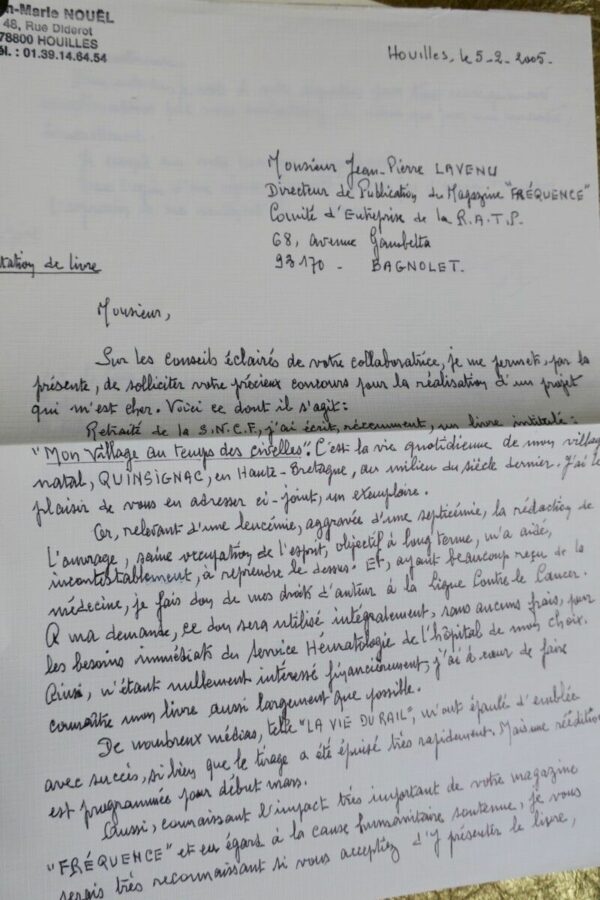 n-Marie NOUËL
48, Rue Diderot
78800 HOUILLES
él. : 01.39.14.64.54
Houilles, le 5-2-2005-
Monsieur Jean-Pierre LAVENU
Directeur de Publication du Magazine "FRÉQUENCE"
Comité d'Entreprise de la R.A.T.P.
68, avenue Gambetta
93170 - BAGNOLET.
tation de livre
Monsieur,
Sur les conseils éclairés de votre collaboratrice, je me permets, par la
présente, de solliciter votre précieux concours pour la réalisation d'un projet
qui m'est cher. Voici ce dont il s'agit:
Retraité de la S.N.C.F, j'ai écrit, récemment, un livre intitulé:
"Mon village au temps des civelles". C'est la vie quotidienne de mon villag
natal, QUINSIGNAC, en Haute-Bretagne, au milieu du siècle dernier. J'ai le
plaisir de vous en adresser ci-joint, un exemplaire.
Or, relevant d'une leucémie, aggravée d'une septicémie, la rédaction de
l'ouvrage, saine occupation de l'esprit, objectif à long terme, m'a aidé,
incontestablement, à reprendre le dessus. Et, ayant beaucoup reçu de la
médecine, je fais don de mes droits d'auteur à la Ligue Contre le Cancer.
A ma demande, ce don sera utilisé intégralement, sans aucuns frais, pour
les besoins immédiats du Service Hématologie de l'hôpital de mon choix.
Ainsi, n'étant nullement intéressé financièrement, j'ai à cœur de faire
connaître mon livre aussi largement que possible.
De nombreux médias, telle "LA VIE DU RAIL", m'ont épaulé d'emblée
avec succès, si bien que le tirage a été épuisé très rapidement. Mais une réédition
est programmée pour début mars.
Aussi, connaissant l'impact très important de votre magazine
"FRÉQUENCE" et eu égard à la cause humanitaire soutenue, je vous
serais très reconnaissant si vous acceptiez d'y présenter le livre,